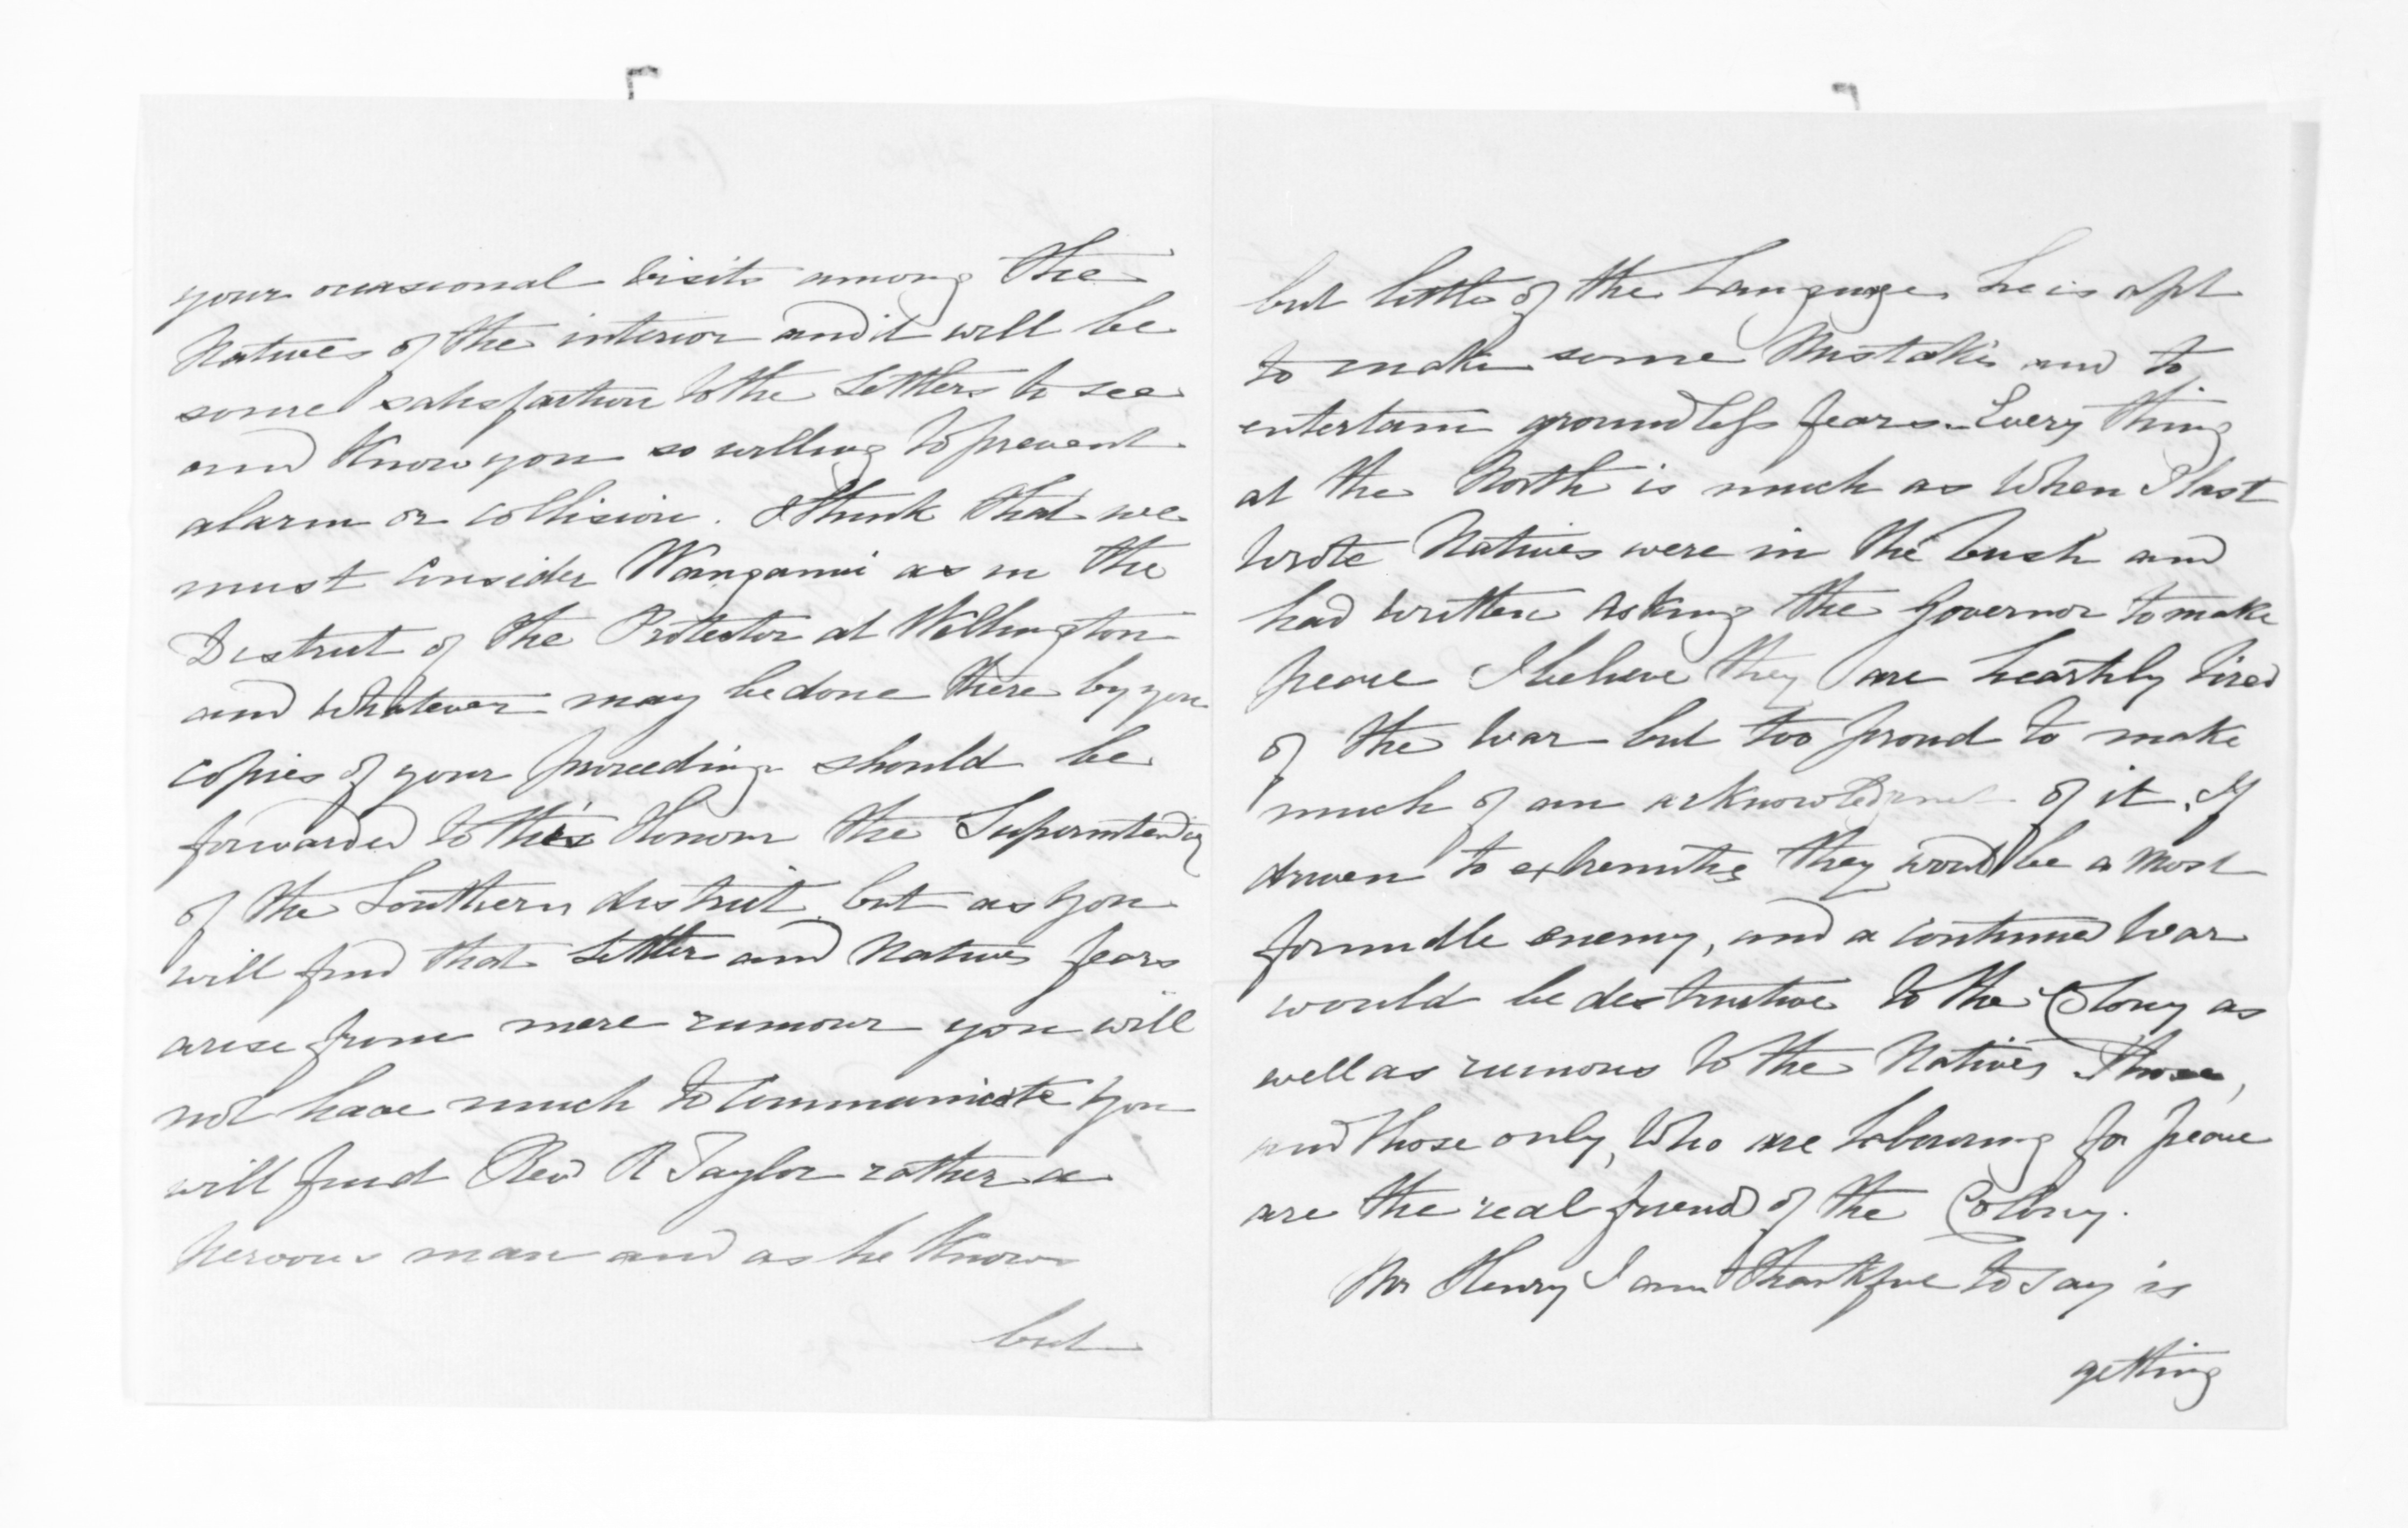 your occasional visits among the
Natives of the interior and it will be
some satisfaction to the Settlers to see
and Know you so willing to prevent
alarm or collision. I think that we
must consider Wanganui as in the
District of the Protector at Wellington
and whatever may be done there by you
copies of your proceedings should be
forwarded to His Honour the Superintendent
of the Southern district, but as you
will find that Settler and Natives fears
arise from mere rumour you will
not have much to communicate you
will find Revd R Taylor rather a
nervous man and as he Knows
but
but little of the Language, he is apt
to make some Mistakes and to
entertain groundless fears. Every thing
at the North is much as when I last
wrote Natives were in the bush and
had written asking the Governor to make
peace I believe they are heartily tired
of the war but too proud to make
much of an acknowledgment of it. If
driven to extremities they would be a most
formidle enemy, and a continued war
would be destructive to the Colony as
well as ruinous to the Natives Those,
and those only, who are labouring for peace
are the real friends of the Colony.
Mr Henry I am thankful to say is
getting